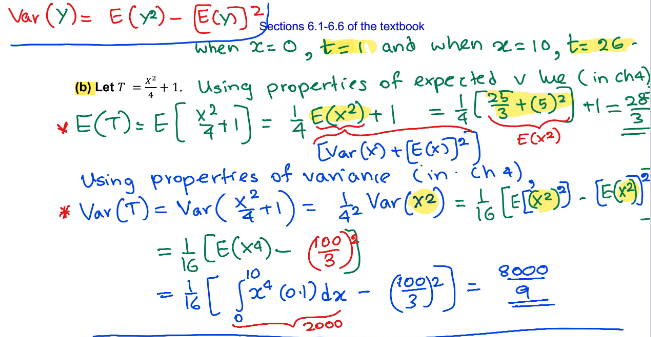 Var (Y) = E(Y²) - [E(Y)]²
Sections 6.1-6.6 of the textbook
when x=0, t=1 and when x=10, t=26.
(b) Let T = x²/4 + 1. Using properties of expected v lue (in ch4)
* E(T) = E[x²/4 + 1] = 1/4 E(x²) + 1 = 1/4 [25/3 + (5)²] + 1 = 28/3
[Var(x) + [E(x)]²] E(x²)
Using properties of variance (in ch 4),
* Var(T) = Var(x²/4 + 1) = 1/4² Var(x2) = 1/16 [E[(x²)²] - [E(x²)]²
= 1/16 [E(x4) - (100/3)²]
= 1/16 [∫₀¹⁰ x⁴ (0.1) dx - (100/3)²] = 8000/9
2000